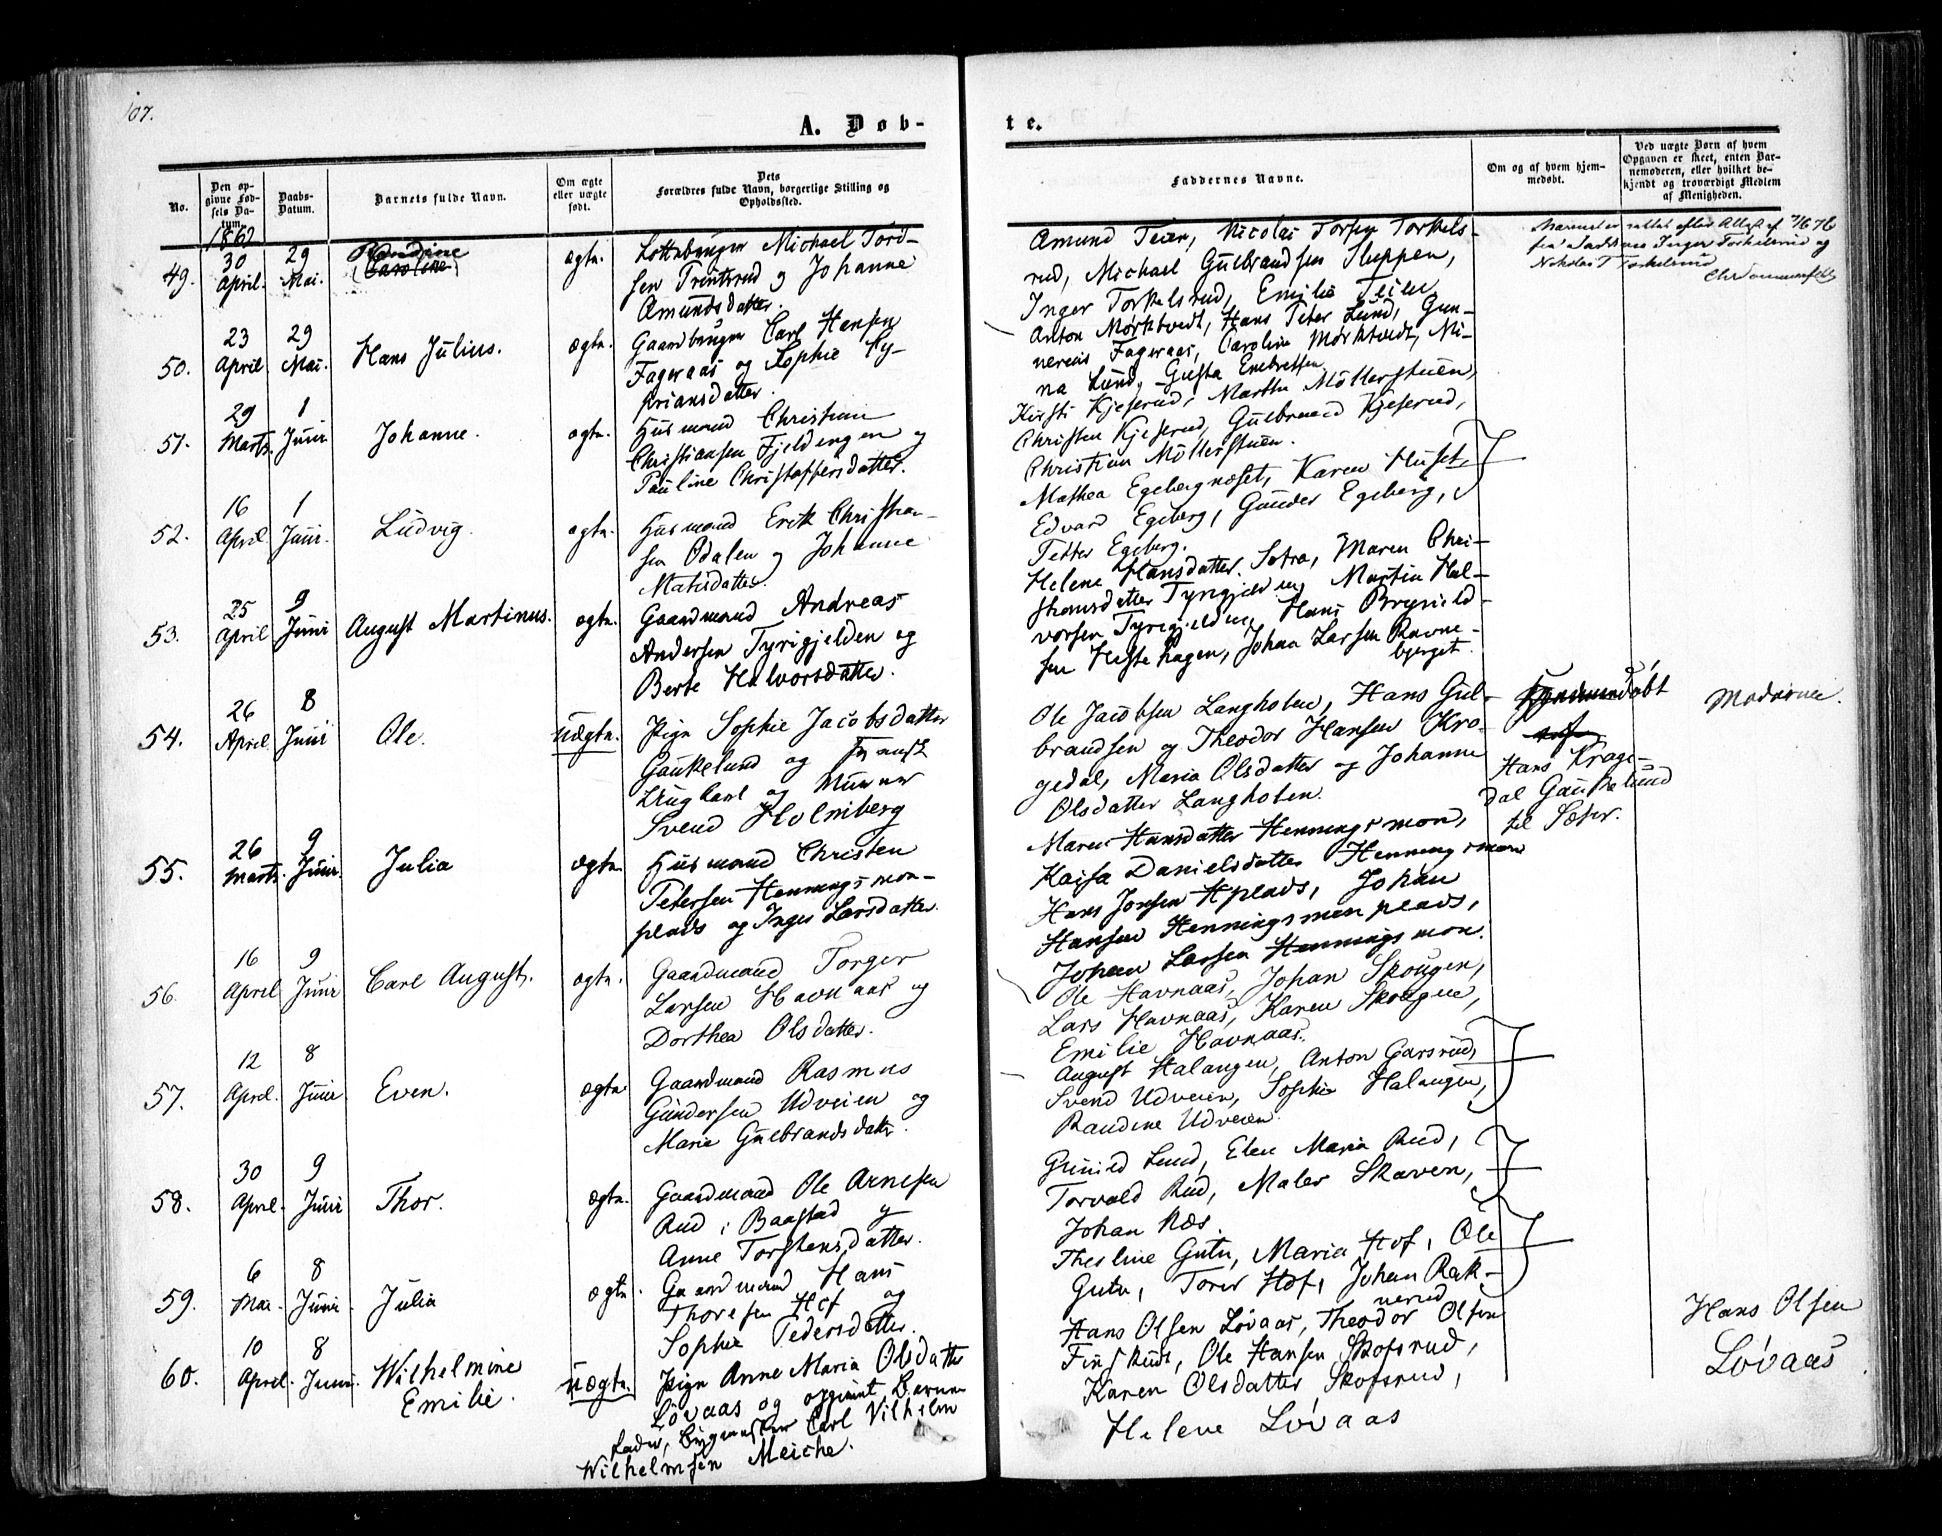 107.
A. Døb-
te.
No.
Den op-
givne Fød-
sels Da-
tum.
Daabs-
Datum.
Barnets fulde Navn.
Om ægte
eller uægte
født.
Dets
Forældres fulde Navn, borgerlige Stilling og
Opholdssted.
Faddernes Navne.
Om og af hvem hjem-
medøbt.
Ved uægte Børn af hvem
Opgaven er skeet, enten Bar-
nemoderen, eller hvilket be-
kjendt og troværdigt Medlem
af Menigheden.
1862
49.
30
April.
29
Mai.
Randine
Caroline
ægte.
Michael Tord-
sen og Johanne
Amundsdatter.
Amund Teien, Nicolai Torsen Torkels-
rud, Michael Gulbrandsen Sleppen,
Inger Torkelsrud, Emilie Teien
50.
23
April
29
Mai.
Hans Julius.
ægte.
Gaardbruger Carl Hansen
Fageraas og Sophie Cy-
priansdatter.
Anton Mørktvedt, Hans Peter Lund, Gun-
nerius Fageraas, Caroline Mørktvedt, Mi-
na Lund, Gusta Enebretsen.
51.
29
Marts.
1
Juni
Johanne.
ægte.
Husmand Christian
Christiansen Fjeldengen og
Pauline Christophersdatter.
Kirsti Kjeserud, Marthe Möllerstuen,
Christen Kjeserud, Gulbrand Kjeserud,
Christian Möllerstuen.
52.
16
April
1
Juni.
Ludvig.
ægte.
Husmand Erik Christian-
sen Odalen og Johanne
Matisdatter.
Mathea Egebergnæset, Karen Huset,
Edvard Egeberg, Gunder Egeberg,
Petter Egeberg.
53.
25
April
9
Juni
August Martinus.
ægte.
Gaardmand Andreas
Andersen Tyrigjelden og
Berte Halvorsdatter.
Helene Hansdatter Sotra, Maren Chri-
stensdatter Tyrigjelden, Martin Hal-
vorsen Tyrigjelden, Hans Brynild-
sen Hestehagen, Johan Larsen Ravne-
bjerget.
54.
26
April
8
Juni
Ole.
Uægte.
Pige Sophie Jacobsdatter
Gaukelund og svensk
Ungkarl og Murer
Svend Holmberg
Ole Jacobsen Langholen, Hans Gul-
brandsen og Theodor Hansen Kro-
gedal, Maria Olsdatter og Johanne
Olsdatter Langholen.
Hjemmedøbt
af
Hans Kroge-
dal Gaukelund
til Sæter.
Moderen.
55.
26
Marts.
9
Juni.
Julia
ægte.
Husmand Christen
Petersen Henningsmon-
plads og Inger Larsdatter.
Maren Hansdatter Henningsmon,
Kaisa Danielsdatter Henningsmon
Hans Jonsen Hplads, Johan
Hansen Henningsmonplads,
Johan Larsen Henningsmon.
56.
16
April
9
Juni
Carl August.
ægte.
Gaardmand Torger
Larsen Havnaas og
Dorthea Olsdatter.
Ole Havnaas, Johan Skougen,
Lars Havnaas, Karen Skougen,
Emilie Havnaas.
57.
12
April.
8
Juni
Even.
ægte.
Gaardmand Rasmus
Gundersen Udveien og
Marie Gulbrandsdatter.
August Halangen, Anton Garsrud,
Svend Udveien, Sophie Halangen,
Randine Udveien.
58.
30
April.
9
Juni
Thor.
ægte.
Gaardmand Ole Arnesen
Rud i Baastad og
Anne Torstensdatter.
Lund, Elen Maria Rud,
Torvald Rud, Maler Skaven,
Johan Næs.
59.
6
Mai.
8
Juni.
Julia
ægte.
Gaardmand Hans
Thoresen Hof og
Sophie Pedersdatter.
Theline Gutu, Maria Hof, Ole
Gutu, Torer Hof, Johan Rak-
nerud
60.
10
April.
8
Juni.
Wilhelmine
Emilie.
Uægte.
Pige Anne Maria Olsdatter
Løvaas og opgivet Barne-
fader, Bygmester Carl Vilhelm
Wilhelmsen Meiche.
Hans Olsen Løvaas, Theodor Olsen
Finskudt, Ole Hansen Skofsrud,
Karen Olsdatter Skofsrud,
Helene Løvaas
Hans Olsen
Løvaas